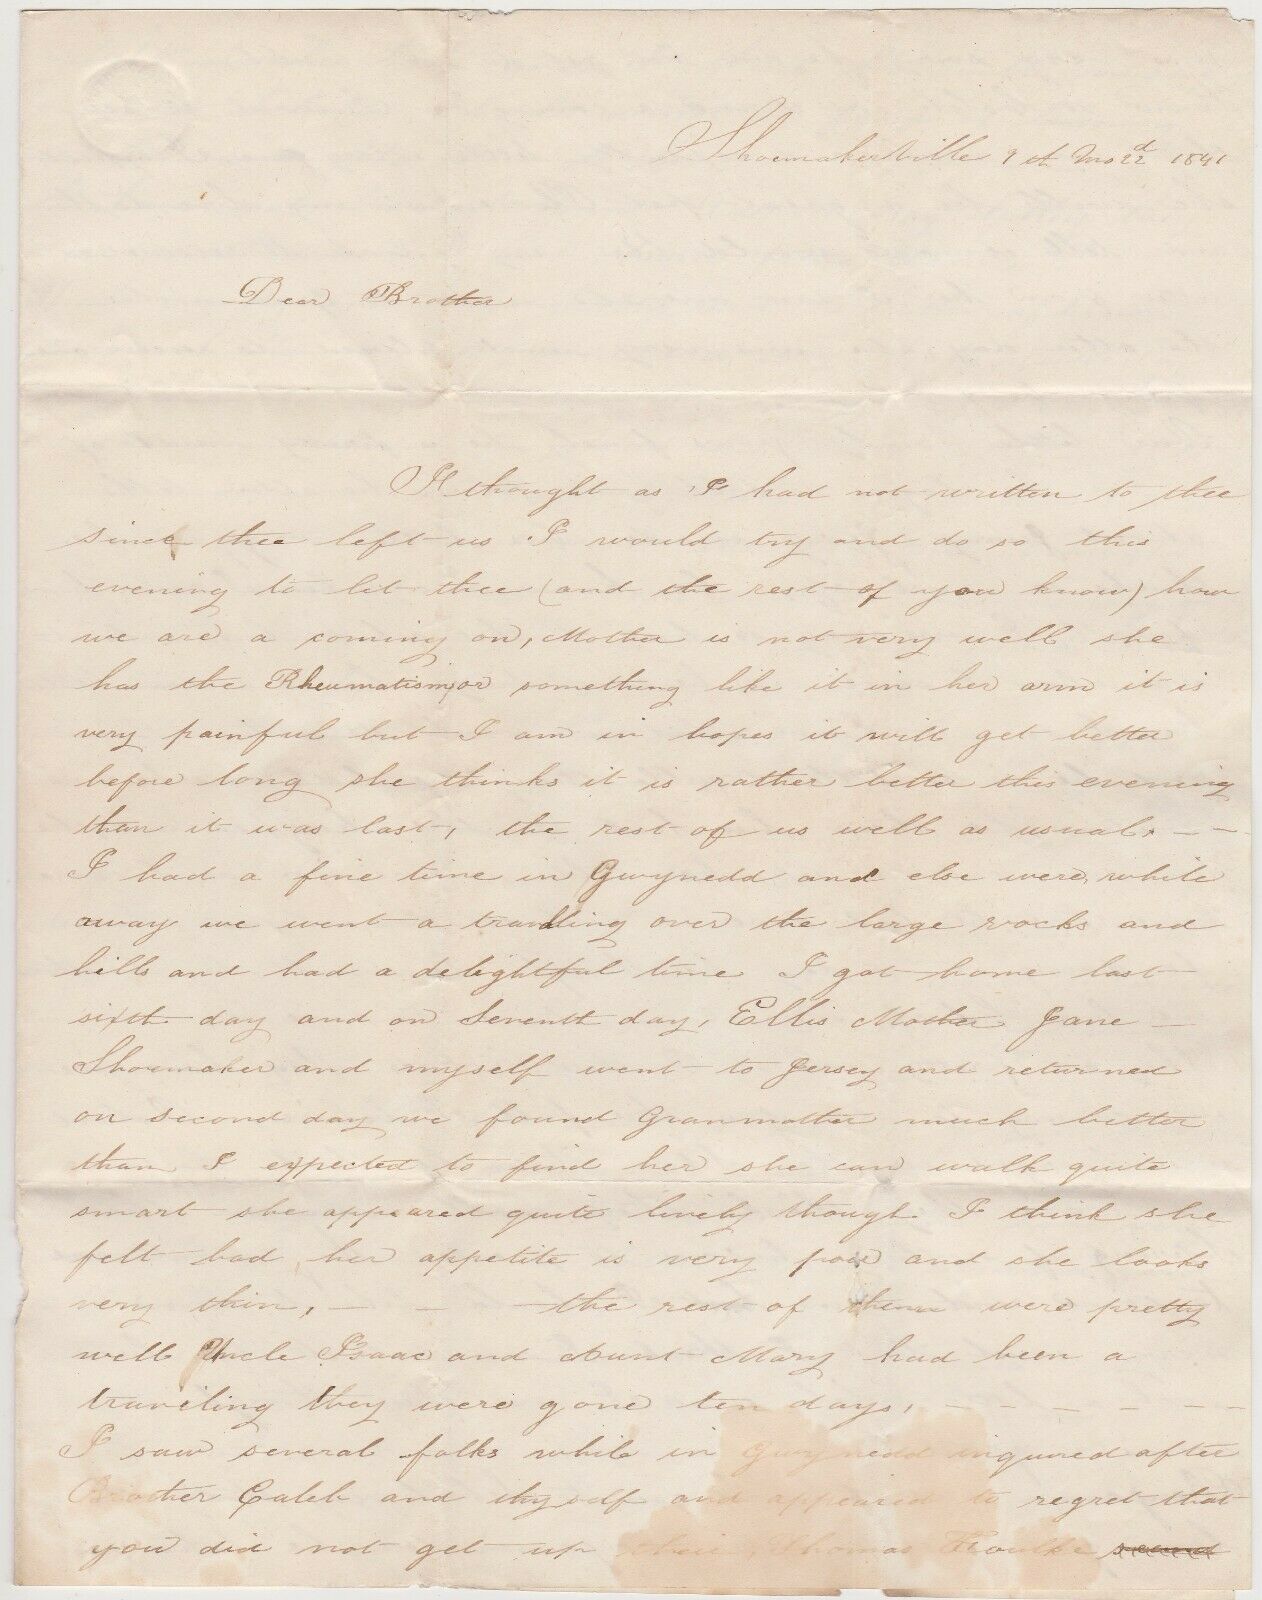 Shoemakerville 9th Mo 22d 1841
Dear Brother
I thought as I had not written to thee
since thee left us I would try and do so this
evening to let thee (and the rest of you know) how
we are a coming on, Mother is not very well she
has the Rheumatism, or something like it in her arm it is
very painful but I am in hopes it will get better
before long she thinks it is rather better this evening
than it was last, the rest of us well as usual. — —
I had a fine time in Gwynedd and else were, while
away we went a travling over the large rocks and
hills and had a delightful time I got home last
sixth day and on Seventh day, Ellis Mother Jane —
Shoemaker and myself went to Jersey and returned
on second day we found Granmother much better
than I expected to find her she can walk quite
smart she appeared quite lively though I think she
felt bad, her appetite is very poor and she looks
very thin, — — — the rest of them were pretty
well Uncle Isaac and Aunt Mary had been a
traveling they were gone ten days, — — — — — —
I saw several folks while in Gwynedd inqured after
Brother Caleb and thyself and appeared to regret that
you did not get up thair Thomas Foulke